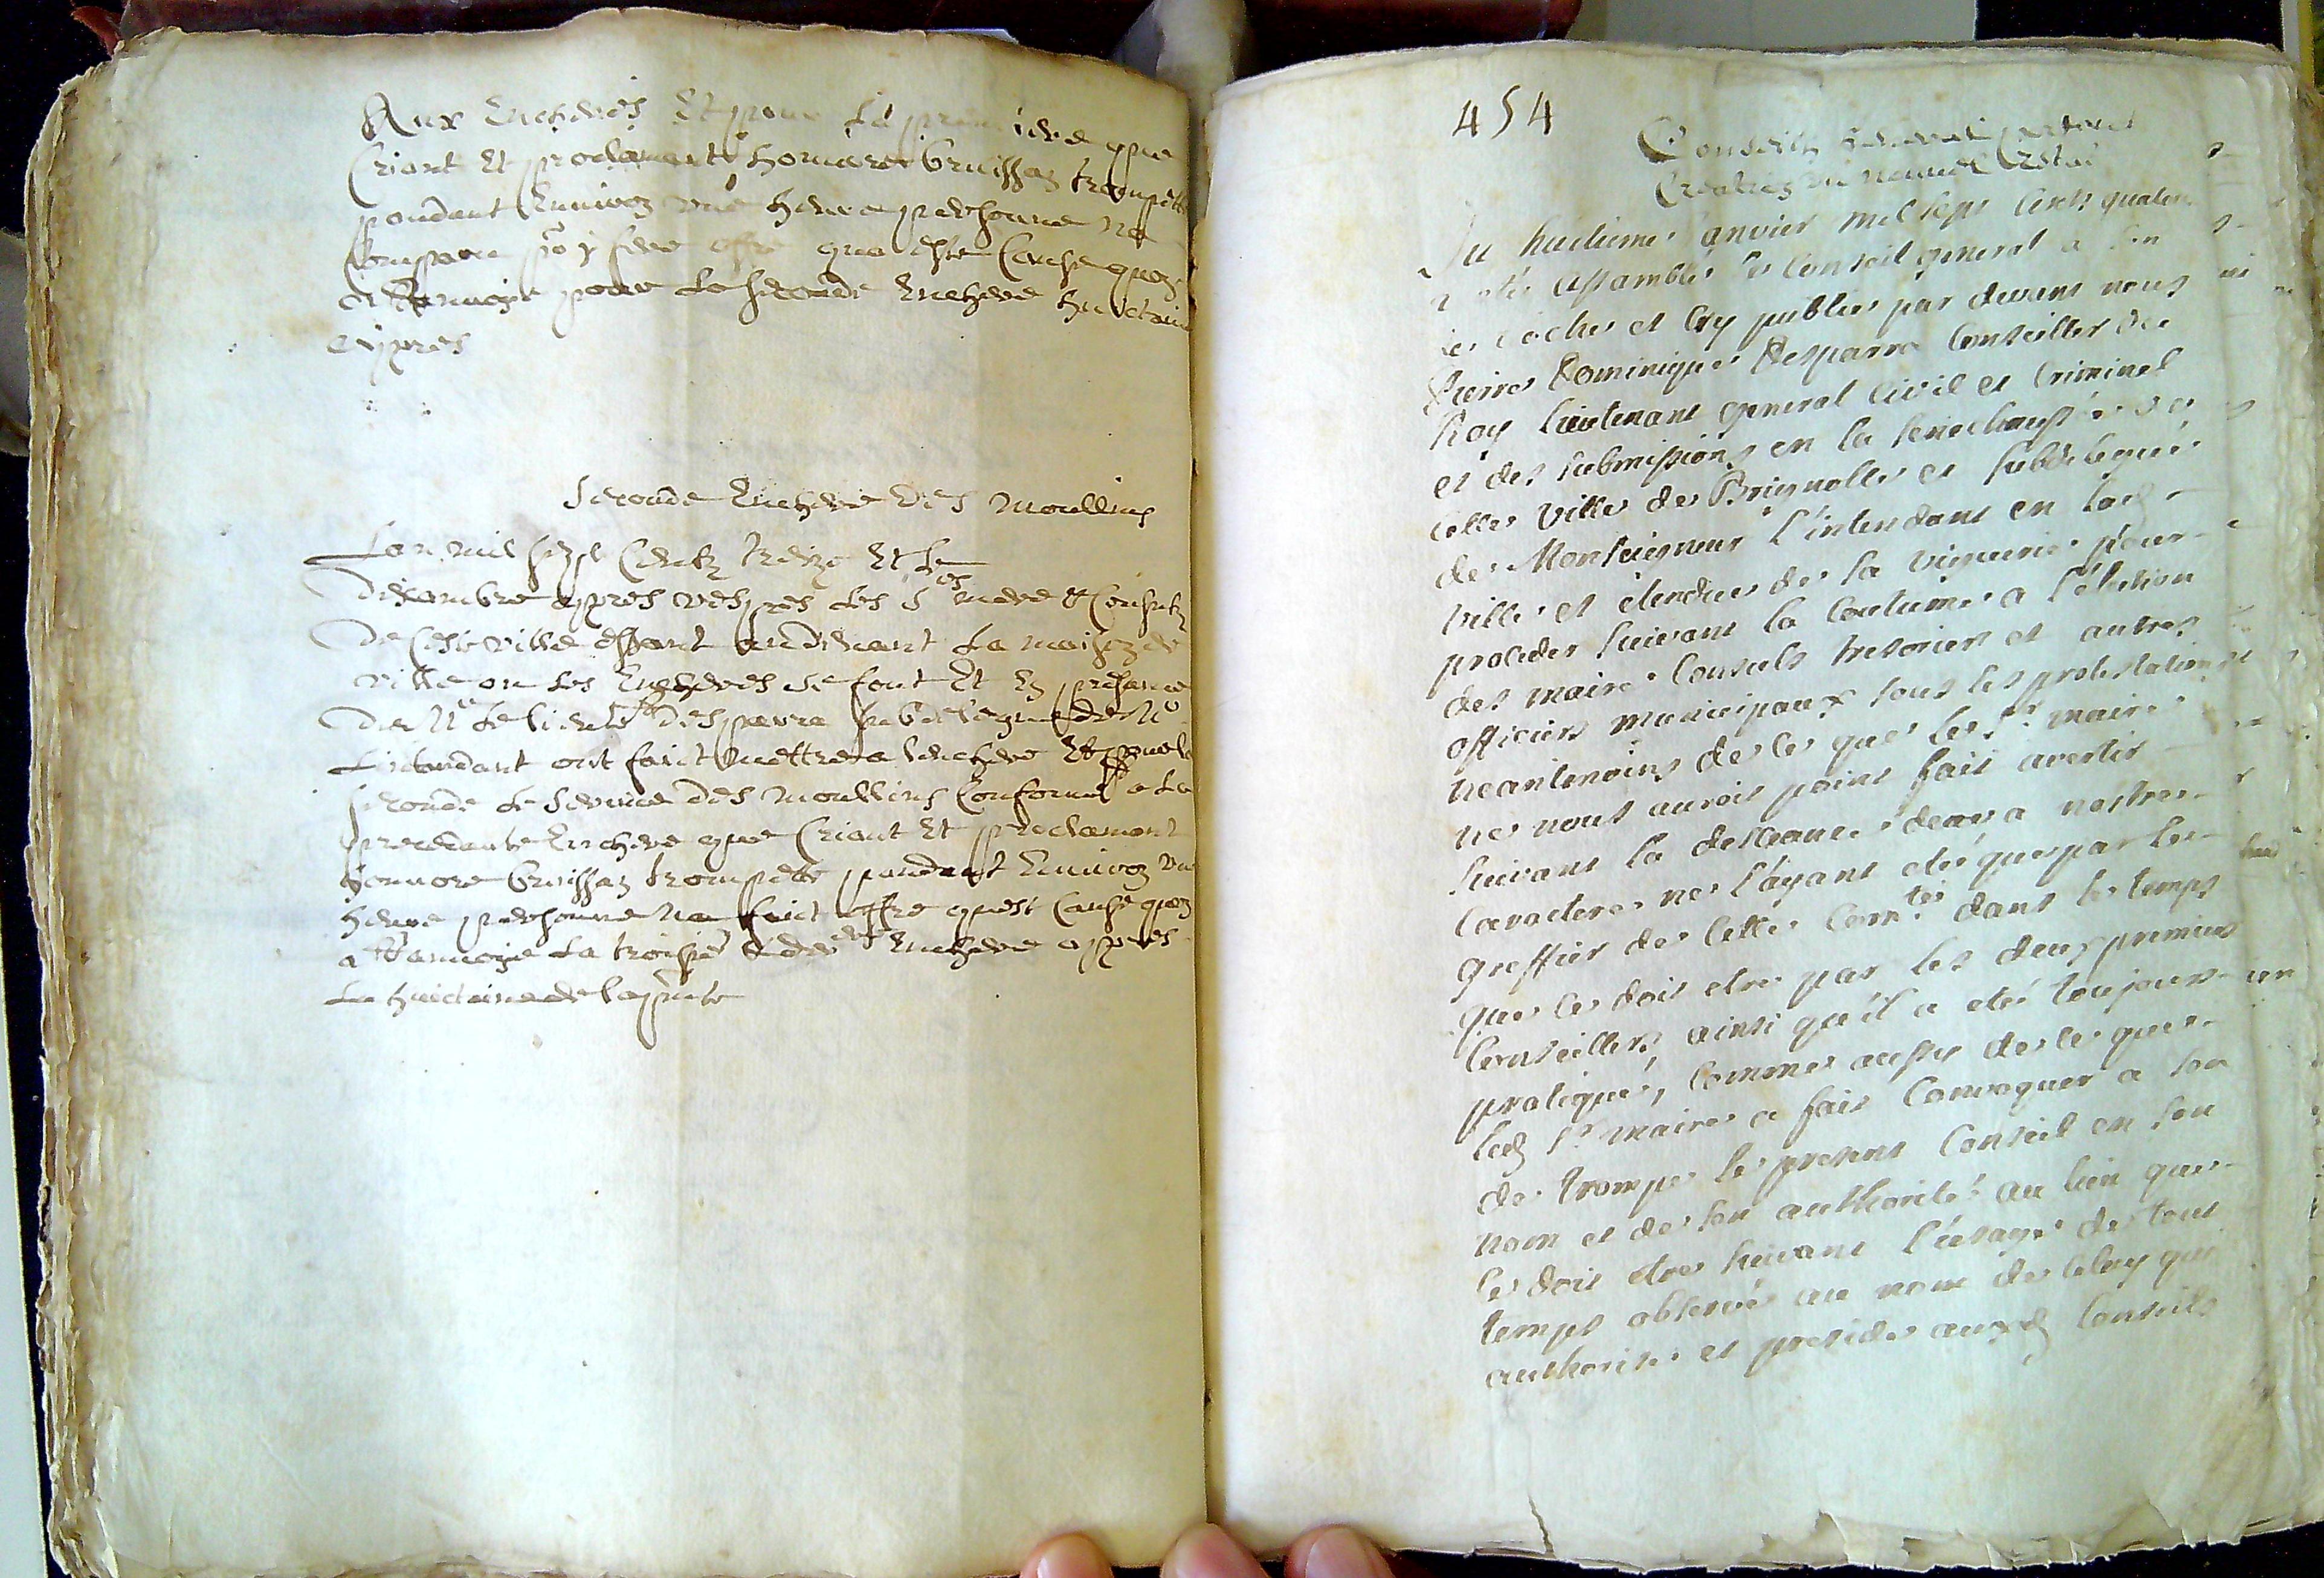 Aux Encheres Et pour la premiere que
Criant Et proclamant honnoré trompette
pendant Environ une heure personne na
Comparu po.r y fere offre que este Cause quon
pour la segonde Enchere huictaine
appres
Segonde Enchere Des Moullins
Lan mil sept Centz treize Et le
Dexambre appres vespres les S.rs mere & Consulz
De Ceste ville estant au devant la maison de
ville ou les Encheres se font Et En presance
De M.r le lieut Desparra subdelegué de M.r
Lintandant ont faict mettre a lenchere Et pour la
segonde le des moullins Conforme a la
precedante Enchere que Criant Et proclamant
honnore trompette pandant Environ une
heure personne na faict offre quest Cause quon
a la troisie.e & der.ere Enchere appres
La huictaine de la p.nte
454
Conseilh general portant
Creation du nouvel Estat
Du huitieme Janvier mil sept Cents quatorze
a été assamblé le Conseil general a son
de cloche et cry publiec par devant nous
Pierre Dominique Desparra Conseiller du
Roy lieutenant general civil et criminel
et des submissions en la senechaussée de
cette ville de Brignolle et subdelegué
de Monseigneur l'intendant en lad
ville et étendue de sa viguerie pour
proceder suivant la coutume a l'élection
des maire Consuls tresorier et autres
officiers municipaux sous les protestations
neantmoins de ce que le s.r maire
ne nous auroit point fait avertir
suivant la deference deue a nostre
caractere ne l'ayant eté que par le
greffier de cette Com.té dans le temps
que ce doit etre par les deux premiers
Conseillers ainsi qu'il a eté toujours
pratiqué, comme aussy de ce que
led s.r maire a fait Convoquer a son
de trompe le present Conseil en son
nom et de son authorité au lieu que
ce doit etre suivant l'usage de tout
temps observé au nom de celuy qui
authorise et preside auxd Conseils